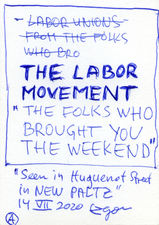 - LABOR UNIONS -
FROM THE FOLKS
WHO BRO
THE LABOR
MOVEMENT
"THE FOLKS WHO
BROUGHT YOU
THE WEEKEND"
"Seen in Huguenot Street
in NEW PALTZ"
14 VII 2020
A